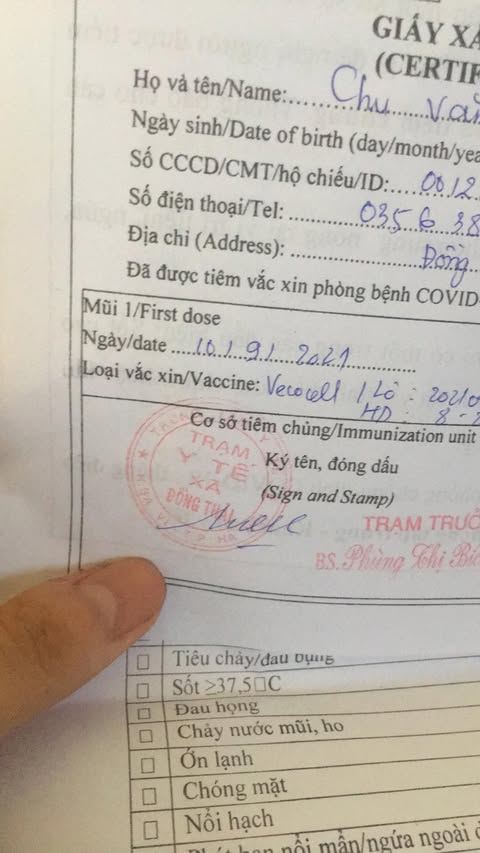 GIẤY XÁ
(CERTIF
Họ và tên/Name: Chu Văn
Ngày sinh/Date of birth (day/month/yea
Số CCCD/CMT/hộ chiếu/ID: 0012
Số điện thoại/Tel: 035 6 38
Địa chỉ (Address): Đồng
Đã được tiêm vắc xin phòng bệnh COVID-
Mũi 1/First dose
Ngày/date 10/9/2021
Loại vắc xin/Vaccine: Verocell / Lô: 2021
HD: 8-2
Cơ sở tiêm chủng/Immunization unit
Ký tên, đóng dấu
(Sign and Stamp)
TRẠM
Y TẾ
XÃ
ĐỒNG THÁI
TRẠM TRƯỞ
BS. Phùng Thị Bíc
Tiêu chảy/đau bụng
Sốt ≥37,5□C
Đau họng
Chảy nước mũi, ho
Ớn lạnh
Chóng mặt
Nổi hạch
Phát ban nổi mẩn/ngứa ngoài d